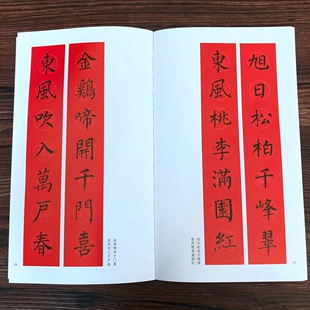 旭日松柏千峰翠
東風桃李滿園紅
金鷄啼開千門喜
東風吹入萬戸春